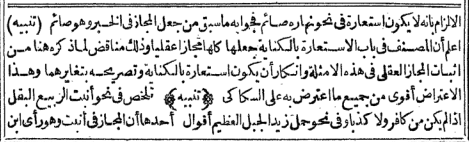 الالزام بأنه لا يكون استعارة فى نحو نهاره صائم فجوابه ماسبق من جعل المجاز فى الخبر وهو صائم (تنبيه)
اعلم أن المصنف فى باب الاستعارة بالكناية جعلها كلها مجازا عقليا وذلك مناقض لماذكره هنا من
اثبات المجاز العقلى فى هذه الامثلة وانكار أن يكون استعارة بالكناية وتصريحه بتغايرهما وهذا
الاعتراض أقوى من جميع ما اعترض به على السكاكى (تنبيه) تلخص فى نحو أنبت الربيع البقل
اذ لم يكن من كافر ولا كذبا وفى نحو حمل زيد الجبل العظيم أقوال أحدها أن المجاز فى أنبت وهو رأى ابن